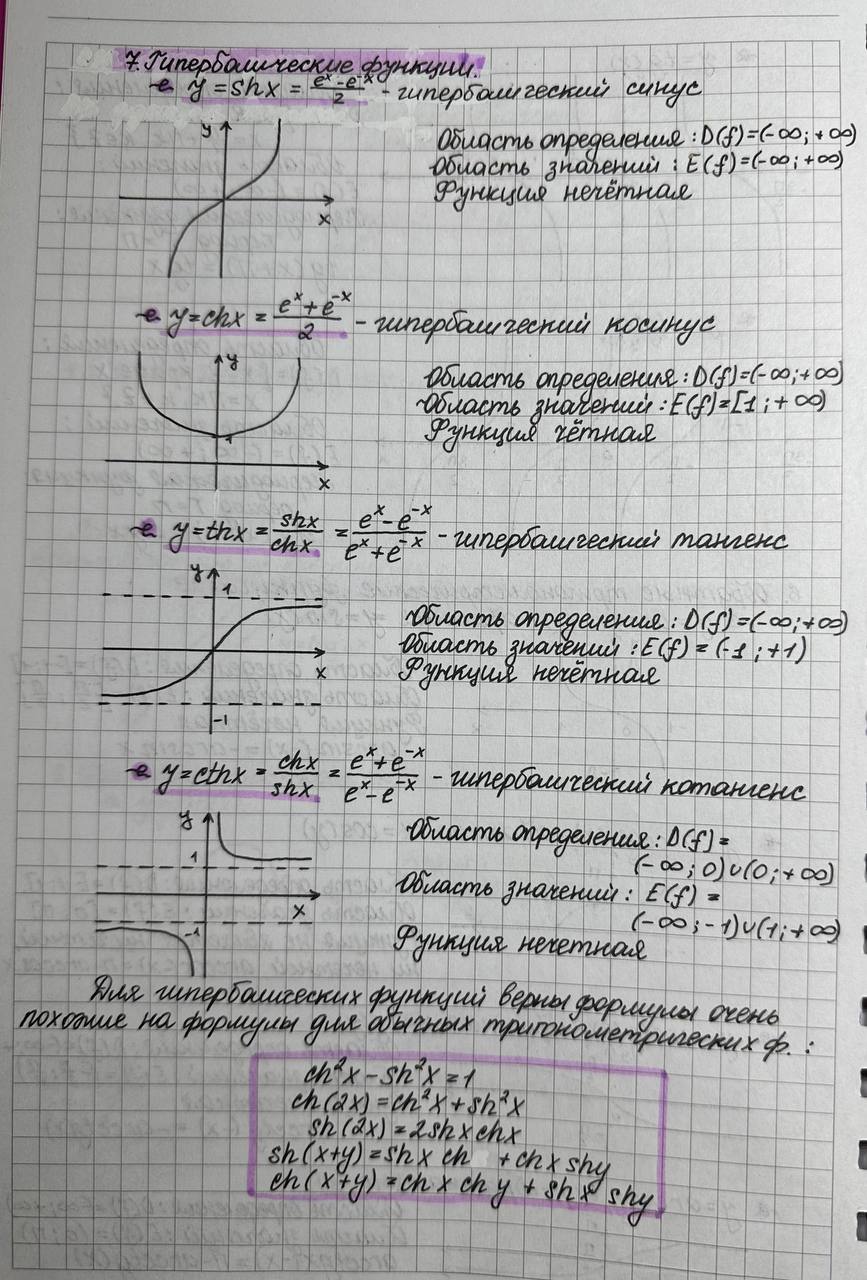 7. Гиперболические функции.
y = shx = (e^x - e^-x)/2 - гиперболический синус
y
x
Область определения : D(f)=(-∞; +∞)
Область значений : E(f)=(-∞; +∞)
Функция нечётная
y = chx = (e^x + e^-x)/2 - гиперболический косинус
y
1
x
Область определения : D(f)=(-∞; +∞)
Область значений : E(f)=[1; +∞)
Функция чётная
y = thx = shx/chx = (e^x - e^-x)/(e^x + e^-x) - гиперболический тангенс
y
1
x
-1
Область определения : D(f)=(-∞; +∞)
Область значений : E(f) = (-1; +1)
Функция нечётная
y = cthx = chx/shx = (e^x + e^-x)/(e^x - e^-x) - гиперболический котангенс
y
1
x
-1
Область определения : D(f)=
(-∞; 0)∪(0; +∞)
Область значений : E(f) =
(-∞; -1)∪(1; +∞)
Функция нечетная
Для гиперболических функций верны формулы очень
похожие на формулы для обычных тригонометрических ф. :
ch²x - sh²x = 1
ch(2x) = ch²x + sh²x
sh(2x) = 2shx chx
sh(x+y) = shx ch + chx shy
ch(x+y) = chx chy + shx shy